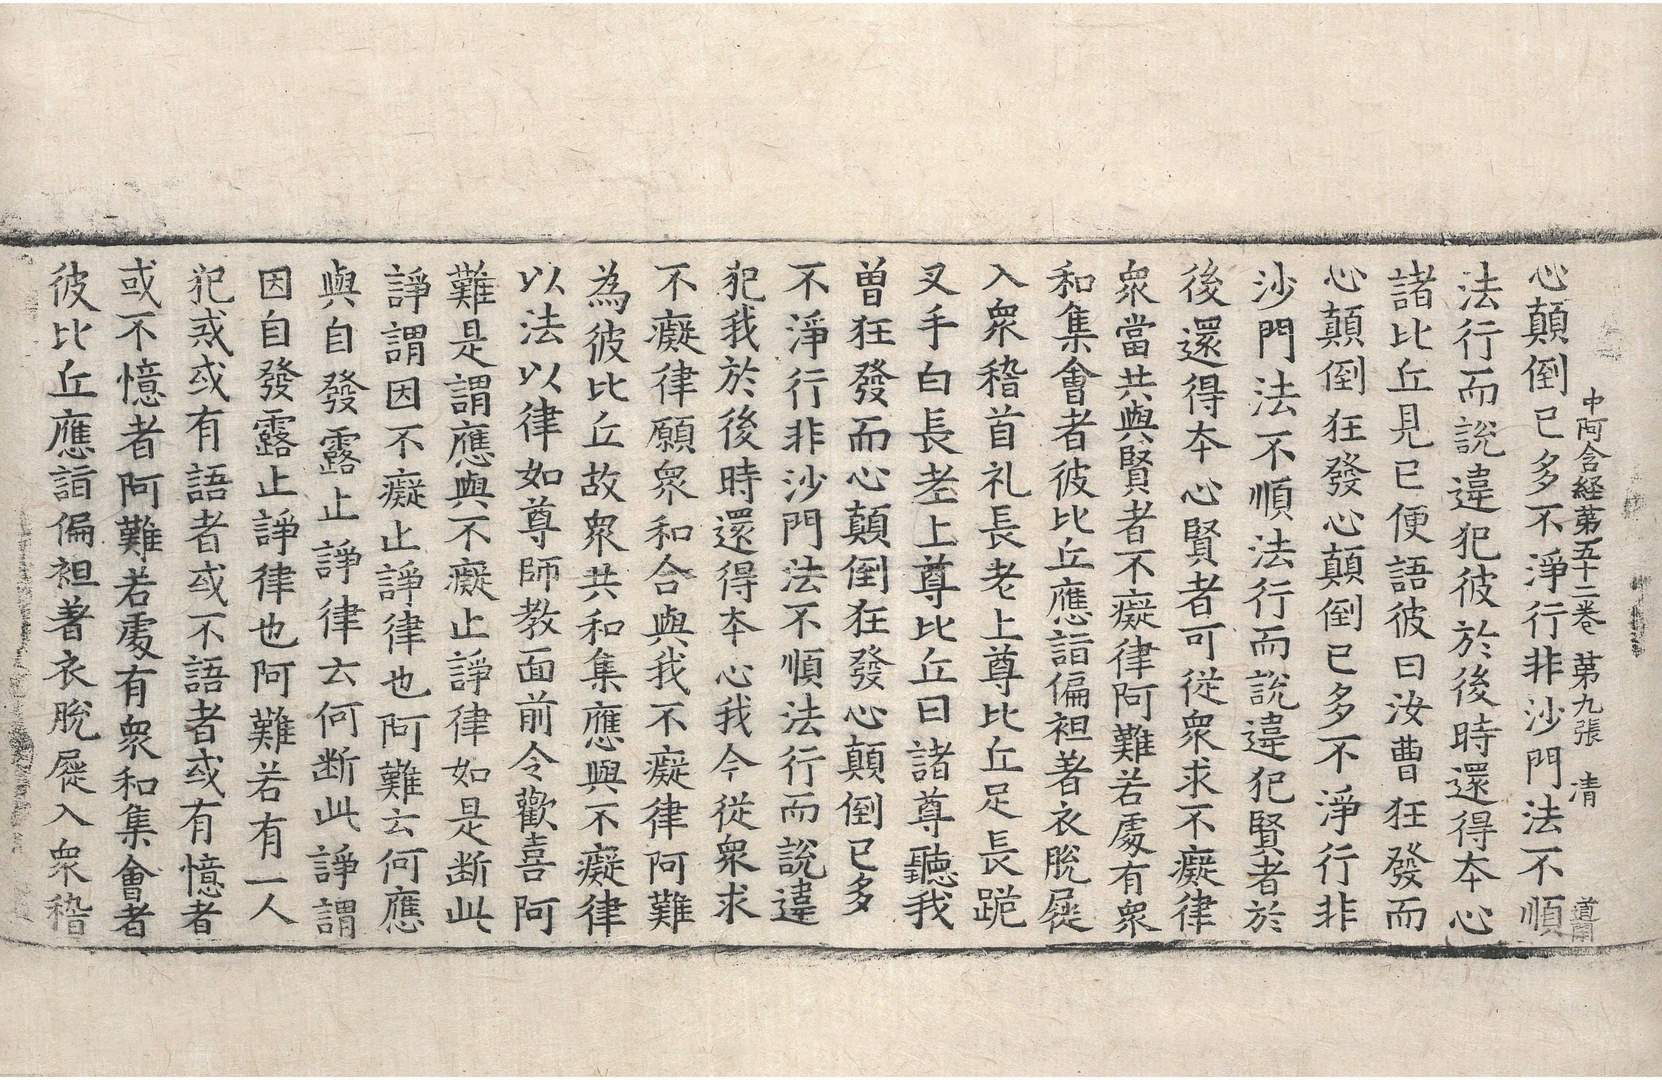 中阿含経苐五十二巻 苐九張 清
心顛倒已多不淨行非沙門法不順
法行而說違犯彼於後時還得夲心
諸比丘見已便語彼曰汝曹狂發而
心顛倒狂發心顛倒已多不淨行非
沙門法不順法行而說違犯賢者於
後還得夲心賢者可從衆求不癡律
衆當共與賢者不癡律阿難若處有衆
和集會者彼比丘應詣偏袒著衣脫屣
入衆稽首礼長老上尊比丘足長跪
叉手白長老上尊比丘曰諸尊聽我
曽狂發而心顛倒狂發心顛倒已多
不淨行非沙門法不順法行而說違
犯我於後時還得夲心我今從衆求
不癡律願衆和合與我不癡律阿難
為彼比丘故衆共和集應與不癡律
以法以律如尊師教面前令歡喜阿
難是謂應與不癡止諍律如是断此
諍謂因不癡止諍律也阿難云何應
與自發露止諍律云何断此諍謂
因自發露止諍律也阿難若有一人
犯戒或有語者或不語者或有憶者
或不憶者阿難若處有衆和集會者
彼比丘應詣偏袒著衣脫屣入衆稽